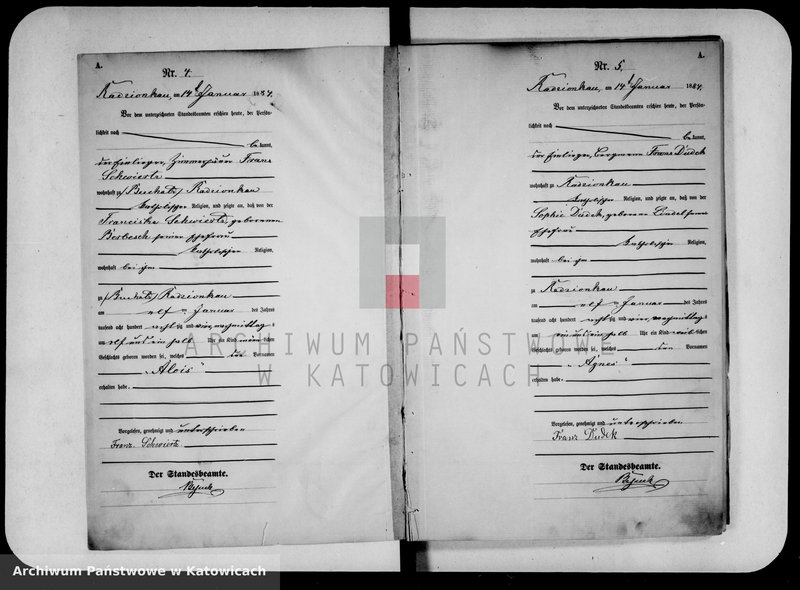 A.
Nr. 4.
Radzionkau, am 14t Januar 1884.
Vor dem unterzeichneten Standesbeamten erschien heute, der Persön-
lichkeit nach
be kannt,
der Einlieger, Zimmerhäuer Franz
Schwiertz
wohnhaft zu (Buchatz) Radzionkau
katholischer Religion, und zeigte an, daß von der
Franciska Schwiertz geborenen
seiner Ehefrau
katholischer Religion,
wohnhaft bei ihm
zu (Buchatz) Radzionkau
am elf ten Januar des Jahres
tausend acht hundert achtzig und vier, vormittags
um elf und ein halb Uhr ein Kind männlichen
Geschlechts geboren worden sei, welches den Vornamen
"Alois"
erhalten habe.
Vorgelesen, genehmigt und unterschrieben
Franz Schwiertz
Der Standesbeamte.
A.
Nr. 5.
Radzionkau, am 14t Januar 1884.
Vor dem unterzeichneten Standesbeamten erschien heute, der Persön-
lichkeit nach
be kannt,
der Einlieger, Bergmann Franz Dudek
wohnhaft zu Radzionkau
katholischer Religion, und zeigte an, daß von der
Sophie Dudek, geborene seiner
Ehefrau
katholischer Religion,
wohnhaft bei ihm
zu Radzionkau
am elf ten Januar des Jahres
tausend acht hundert achtzig und vier, vormittags
um ein halb Uhr ein Kind weiblichen
Geschlechts geboren worden sei, welches den Vornamen
"Agnes"
erhalten habe.
Vorgelesen, genehmigt und unterschrieben
Franz Dudek
Der Standesbeamte.
ARCHIWUM PAŃSTWOWE
W KATOWICACH
Archiwum Państwowe w Katowicach